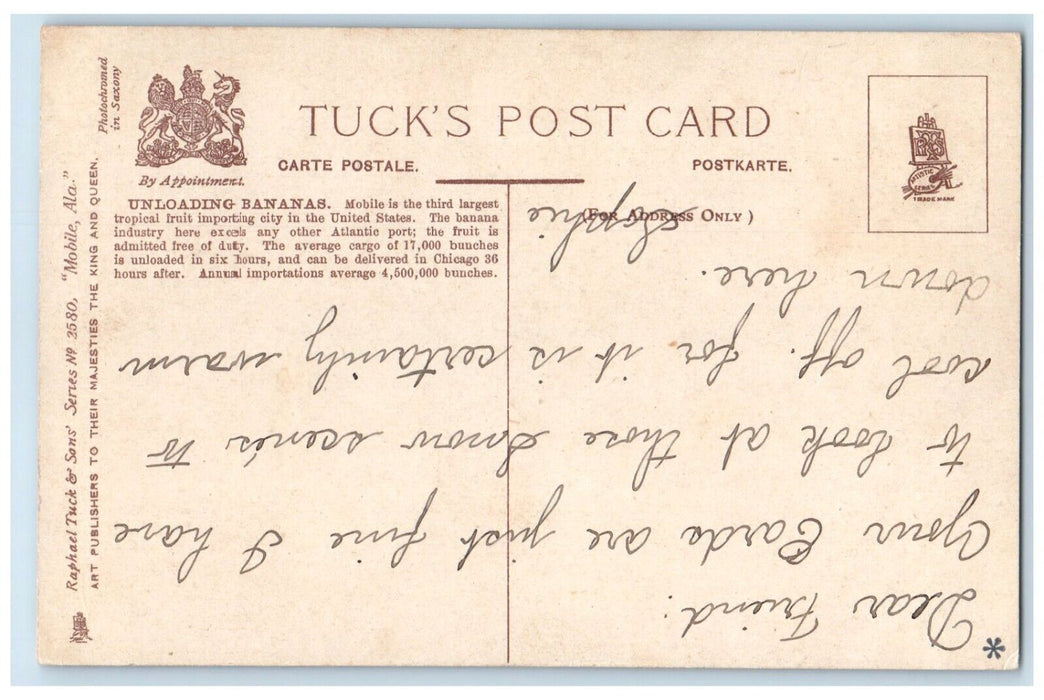 Photochromed
in Saxony
By Appointment.
TUCK'S POST CARD
CARTE POSTALE.
POSTKARTE.
(For Address Only )
ARTISTIC
SERIES
TRADE MARK
UNLOADING BANANAS. Mobile is the third largest
tropical fruit importing city in the United States. The banana
industry here excels any other Atlantic port; the fruit is
admitted free of duty. The average cargo of 17,000 bunches
is unloaded in six hours, and can be delivered in Chicago 36
hours after. Annual importations average 4,500,000 bunches.
Raphael Tuck & Sons' Series Nº 2580, "Mobile, Ala."
ART PUBLISHERS TO THEIR MAJESTIES THE KING AND QUEEN.
Dear Friend:
Your Cards are just fine I have
to look at those snow scenes to
cool off. for it is certainly warm
down here.
Sophie
*